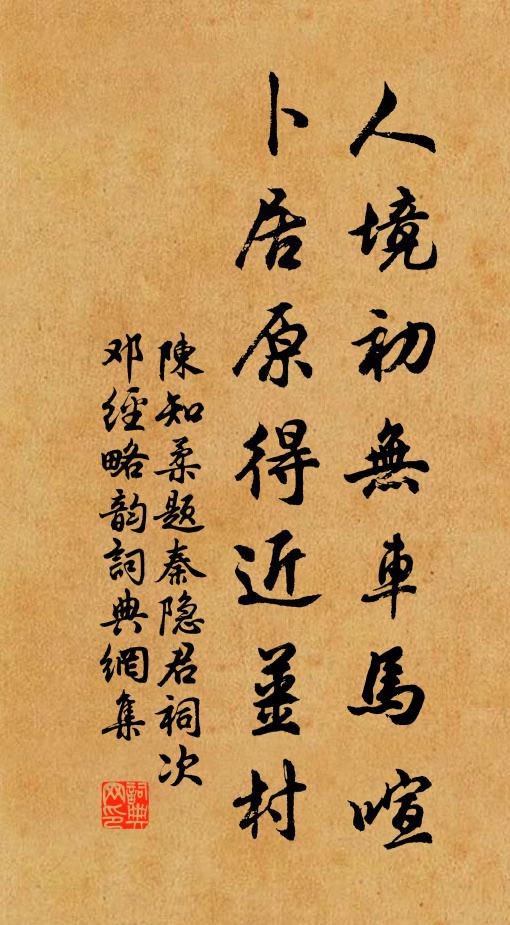 人境初無車馬喧
卜居原得近薑村
陳知柔題秦隐君祠次
邓經略韵詞典網集
詞典网印